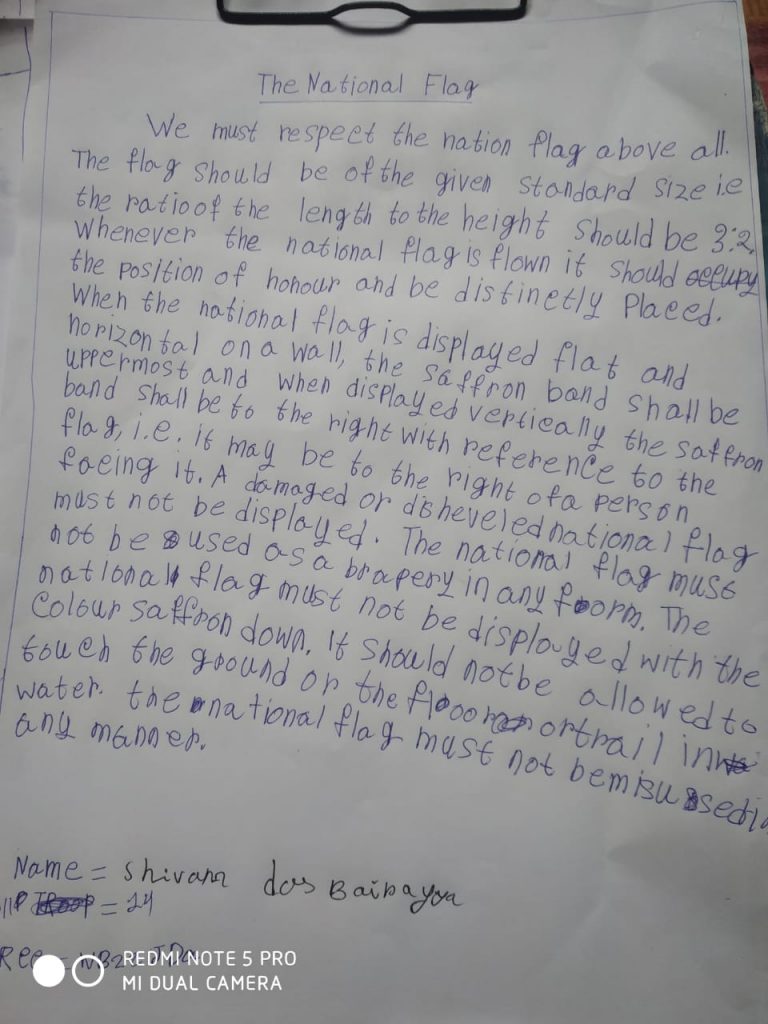 The National Flag
We must respect the nation flag above all.
The flag should be of the given standard size i.e
the ratio of the length to the height should be 3:2.
Whenever the national flag is flown it should occupy
the position of honour and be distinctly Placed.
When the national flag is displayed flat and
horizontal on a wall, the saffron band shall be
uppermost and when displayed vertically the saffron
band shall be to the right with reference to the
flag, i.e. it may be to the right of a person
facing it. A damaged or disheveled national flag
must not be displayed. The national flag must
not be used as a brapery in any form. The
national flag must not be displayed with the
Colour saffron down. It should not be allowed to
touch the ground or the floor or trail in
water. the national flag must not be misused in
any manner.
Name = Shivam das
= 24
REDMI NOTE 5 PRO
MI DUAL CAMERA